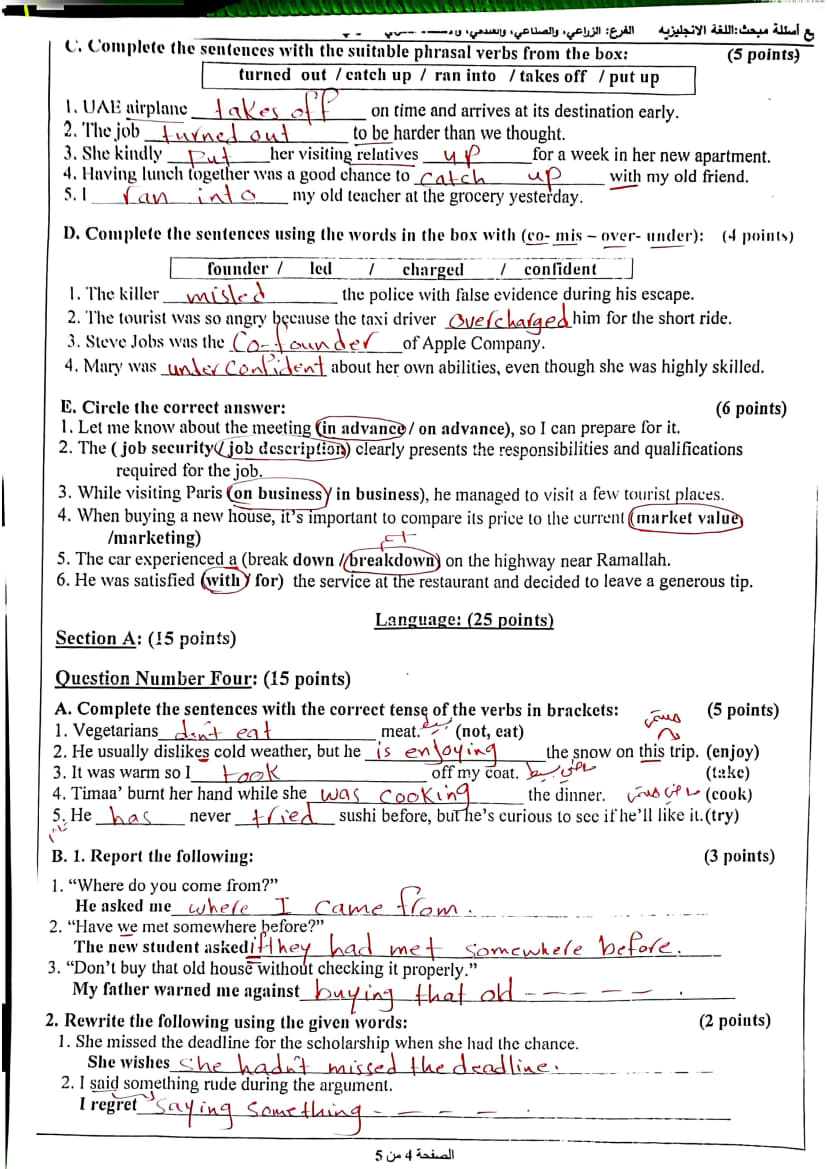 ع أسئلة مبحث: اللغة الانجليزية الفرع: الزراعي، والصناعي، والفندقي،
C. Complete the sentences with the suitable phrasal verbs from the box: (5 points)
turned out / catch up / ran into / takes off / put up
1. UAE airplane takes off on time and arrives at its destination early.
2. The job turned out to be harder than we thought.
3. She kindly put her visiting relatives up for a week in her new apartment.
4. Having lunch together was a good chance to catch up with my old friend.
5. I ran into my old teacher at the grocery yesterday.
D. Complete the sentences using the words in the box with (co- mis – over- under): (4 points)
founder / led / charged / confident
1. The killer misled the police with false evidence during his escape.
2. The tourist was so angry because the taxi driver overcharged him for the short ride.
3. Steve Jobs was the Co-founder of Apple Company.
4. Mary was underconfident about her own abilities, even though she was highly skilled.
E. Circle the correct answer: (6 points)
1. Let me know about the meeting (in advance / on advance), so I can prepare for it.
2. The ( job security / job description) clearly presents the responsibilities and qualifications
required for the job.
3. While visiting Paris (on business / in business), he managed to visit a few tourist places.
4. When buying a new house, it's important to compare its price to the current (market value
/marketing)
5. The car experienced a (break down / breakdown) on the highway near Ramallah.
6. He was satisfied (with / for) the service at the restaurant and decided to leave a generous tip.
Language: (25 points)
Section A: (15 points)
Question Number Four: (15 points)
A. Complete the sentences with the correct tense of the verbs in brackets: (5 points)
مستمر
1. Vegetarians don't eat meat. (not, eat)
2. He usually dislikes cold weather, but he is enjoying the snow on this trip. (enjoy)
3. It was warm so I took off my coat. ماضي بسيط (take)
4. Timaa' burnt her hand while she was cooking the dinner. ماضي مستمر (cook)
5. He has never tried sushi before, but he's curious to see if he'll like it.(try)
B. 1. Report the following: (3 points)
1. "Where do you come from?"
He asked me where I came from.
2. "Have we met somewhere before?"
The new student asked if they had met somewhere before.
3. "Don't buy that old house without checking it properly."
My father warned me against buying that old - - - - - .
2. Rewrite the following using the given words: (2 points)
1. She missed the deadline for the scholarship when she had the chance.
She wishes she hadn't missed the deadline.
2. I said something rude during the argument.
I regret saying something - - - - .
الصفحة 4 من 5